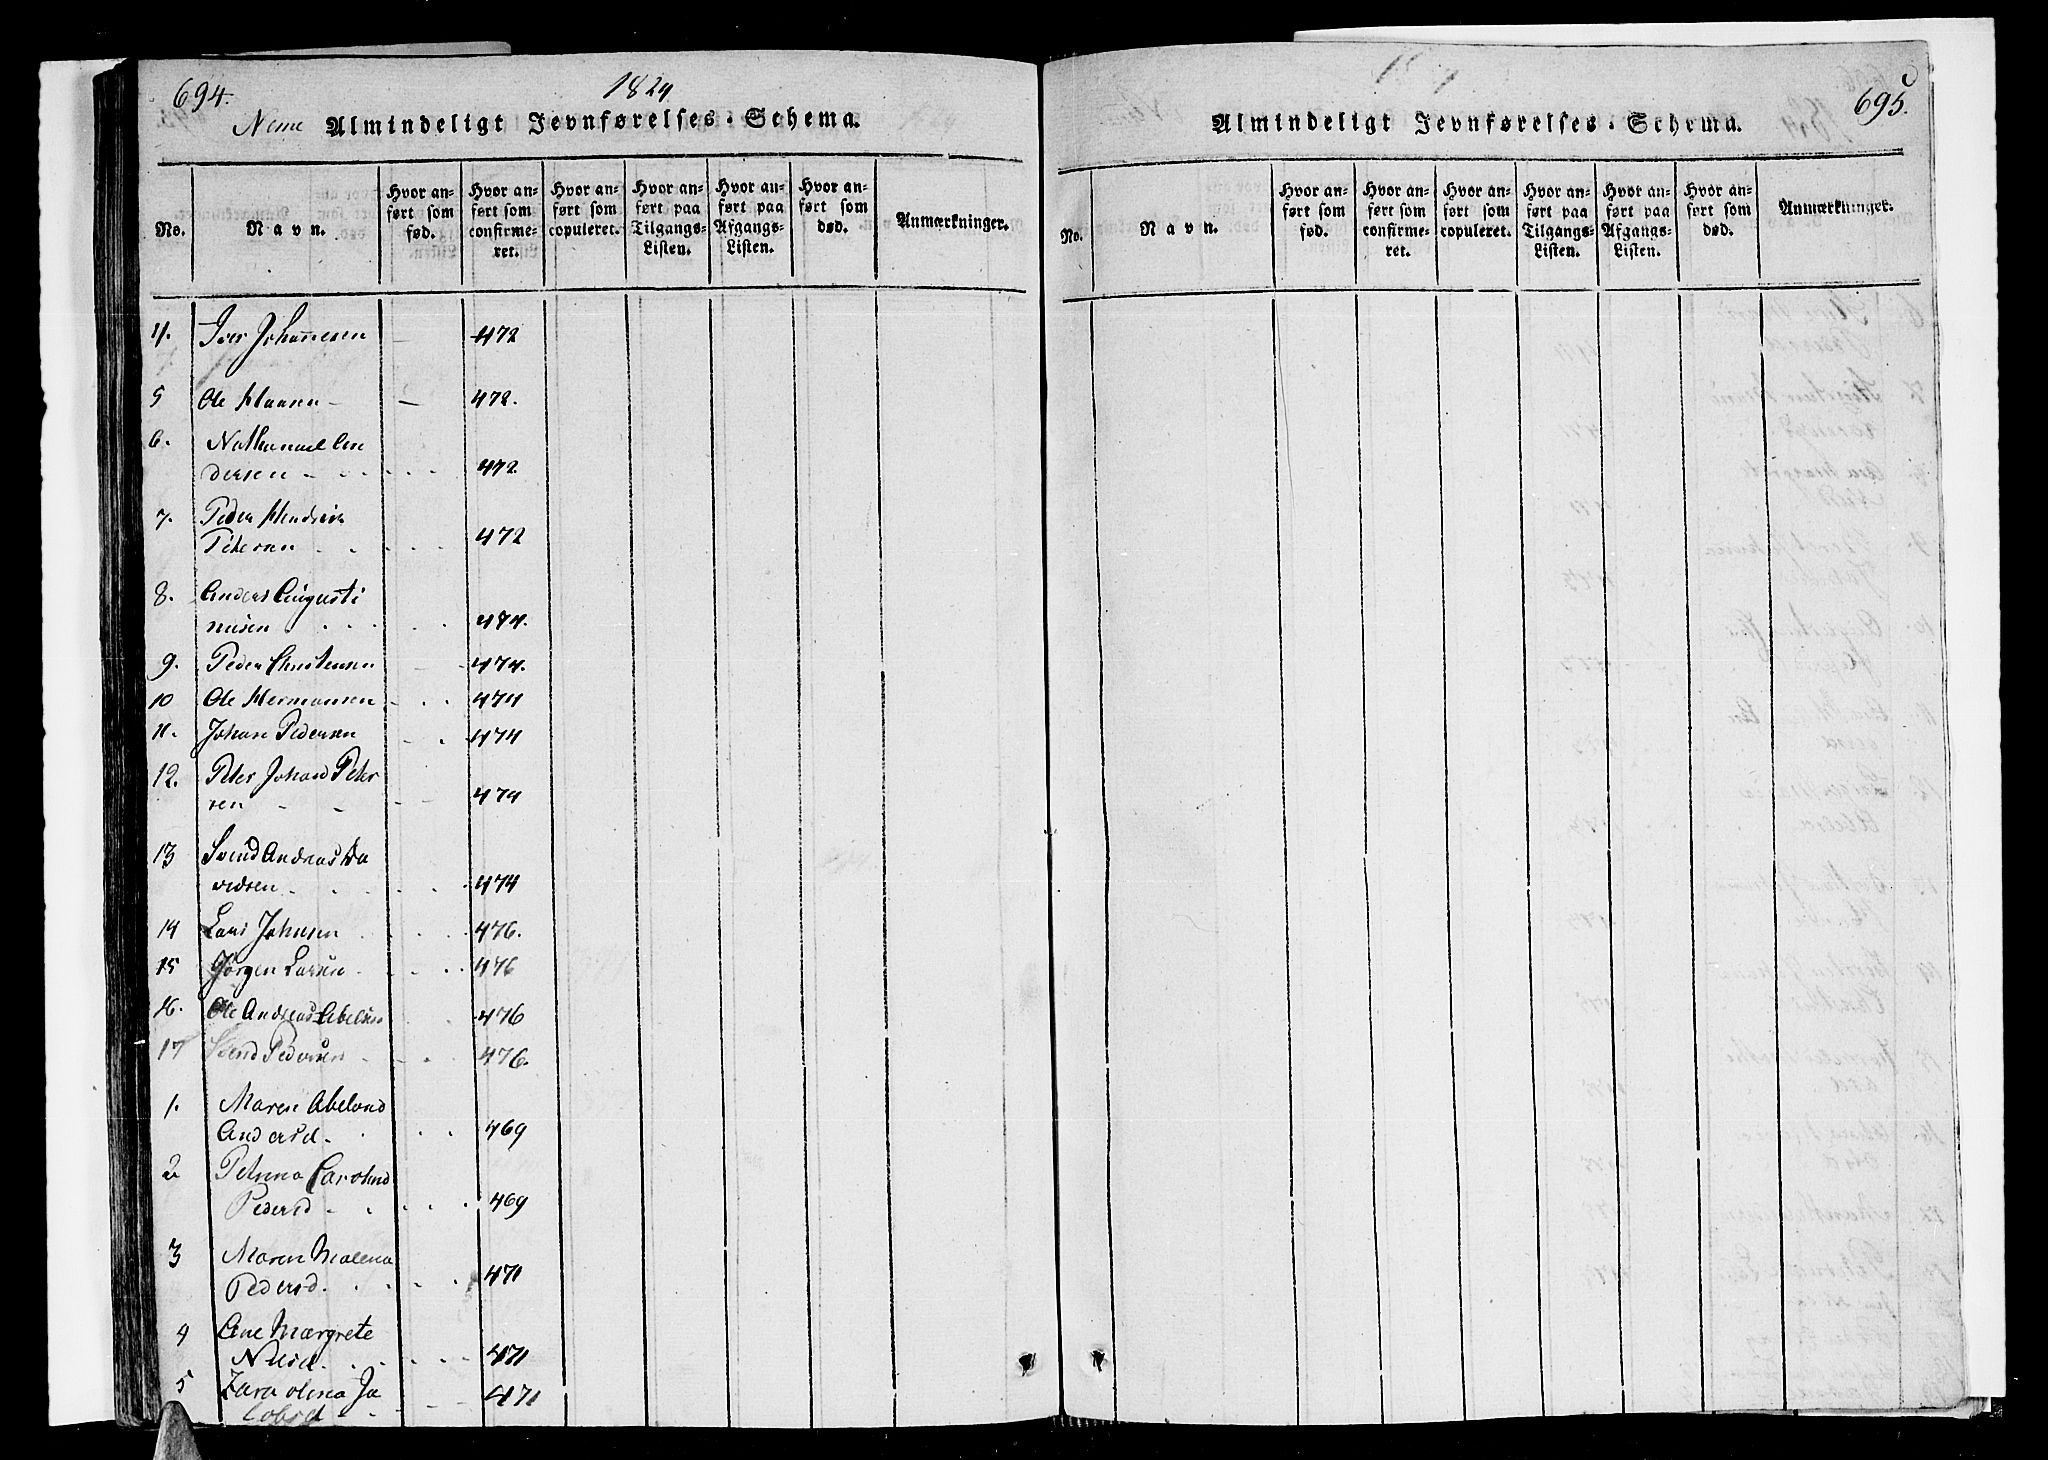 694.
1824
Almindeligt Jevnførelses-Schema.
No.
Navn.
Hvor an-
ført som
fød.
Hvor an-
ført som
confirme-
ret.
Hvor an-
ført som
copuleret.
Hvor an-
ført paa
Tilgangs-
Listen.
Hvor an-
ført paa
Afgangs-
Listen.
Hvor an-
ført som
død.
Anmærkninger.
4. Iver Johannesen - 472
5 Ole - 472.
6. Nathanael An
dersen - 472.
7. Peder Hendrik
Petersen 472
8. Anders Augusti
nusen 474.
9. Peder Christensen 474.
10 Ole Hermansen - 474
11. Johan Pedersen - 474
12. Peter Johan Peter
sen - 474
13 Svend Andreas Da
vidsen 474
14 Lars Johnsen 476.
15 Jørgen Larsen 476
16. Ole Andreas Abelsen 476
17 Svend Pedersen - 476.
1. Maren Abelond
Andersd. 469
2 Petrina Carolina
Pedersd - 469
3 Maren Malena
Pedersd. 471
4 Ane Margrete
Nilsd. 471
5 Zara Olina Ja
cobsd - 471
695.
Almindeligt Jevnførelses-Schema.
No.
Navn.
Hvor an-
ført som
fød.
Hvor an-
ført som
confirme-
ret.
Hvor an-
ført som
copuleret.
Hvor an-
ført paa
Tilgangs-
Listen.
Hvor an-
ført paa
Afgangs-
Listen.
Hvor an-
ført som
død.
Anmærkninger.